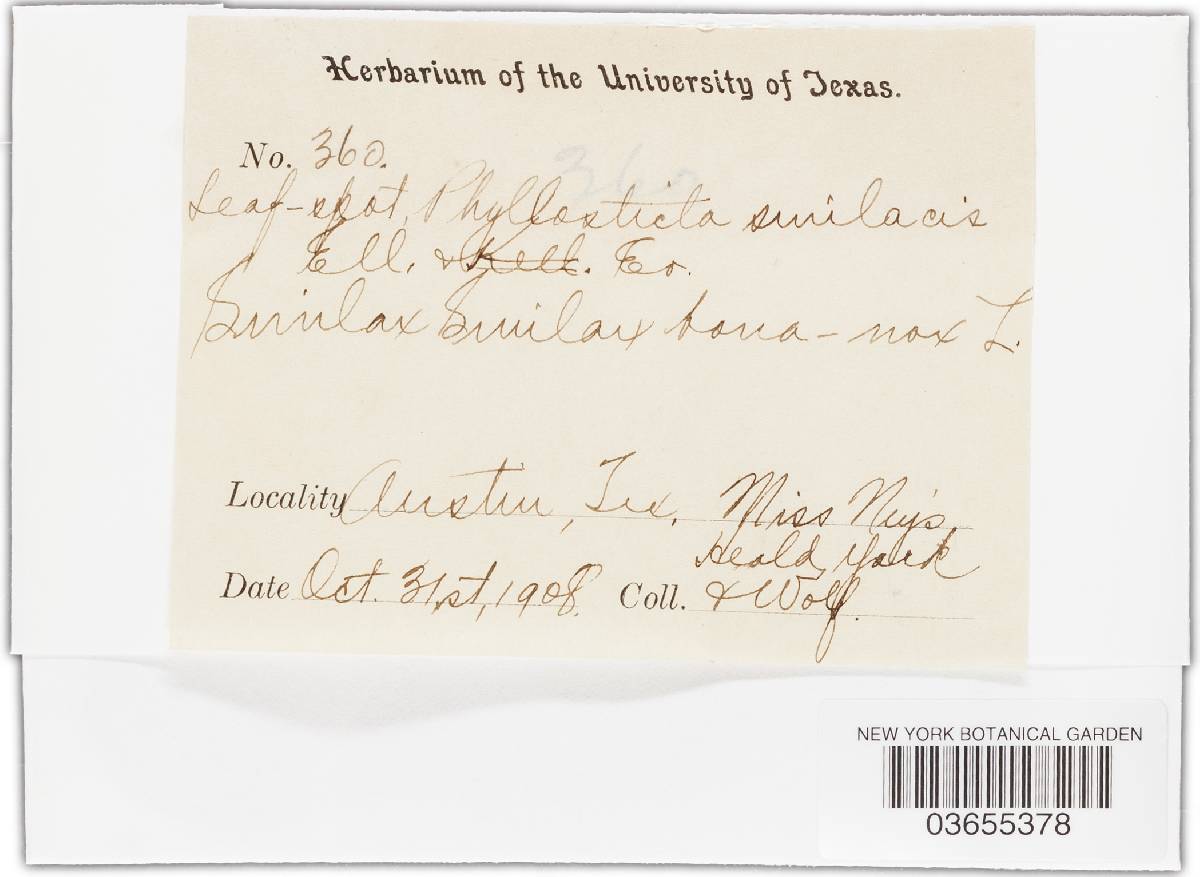 Herbarium of the University of Texas.
No. 360.
360
Leaf-spot, Phyllosticta smilacis
Ell. & Kell. Ev.
Smilax Smilax bona-nox L.
Locality Austin, Tex. Miss
Heald, York
Date Oct. 31st, 1908. Coll. & Wolf.
NEW YORK BOTANICAL GARDEN
03655378